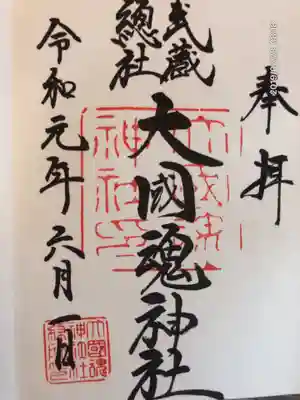 奉拝
武蔵
總社
大國魂神社
令和元年六月一日